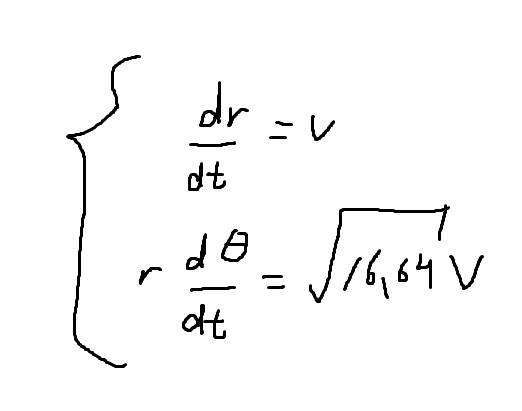 dr/dt = v
r dθ/dt = √16,64 V